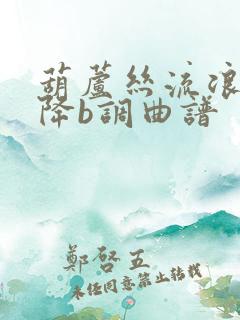 葫蘆絲流浪
降b調曲譜
鄭啓五
未经同意禁止转载